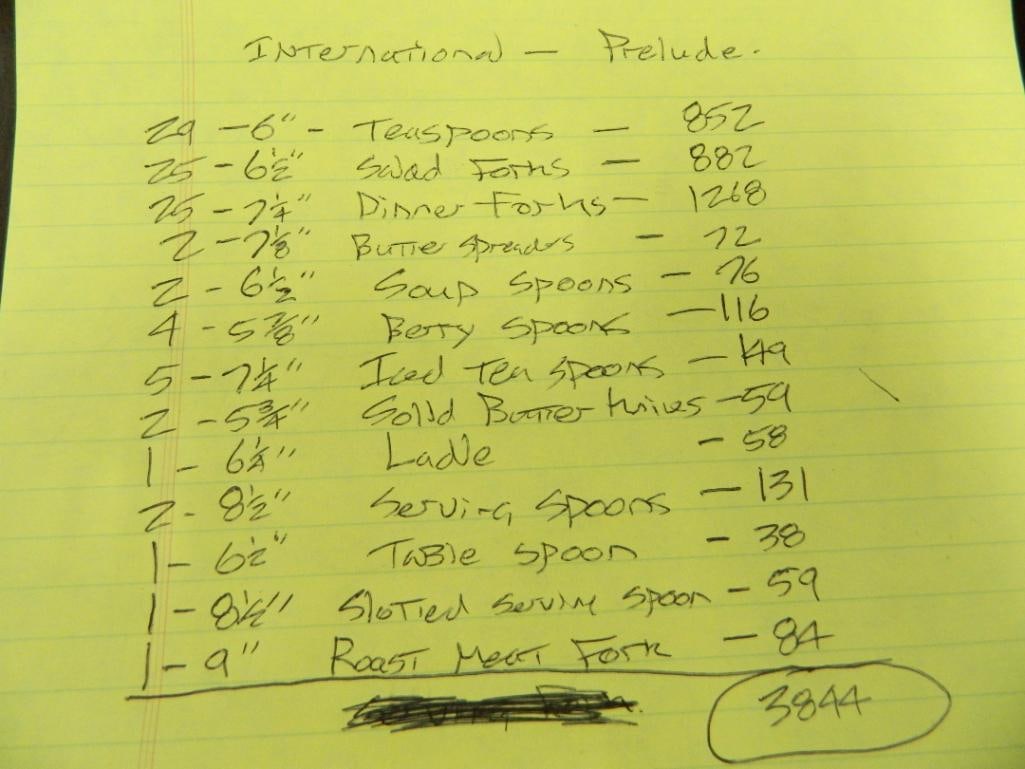 International — Prelude.
29 - 6" - Teaspoons — 852
25 - 6½" Salad Forks — 882
25 - 7¼" Dinner Forks — 1268
2 - 7⅛" Butter spreaders — 72
2 - 6½" Soup spoons — 76
4 - 5⅞" Berry spoons — 116
5 - 7¼" Iced tea spoons — 149
2 - 5¾" Solid Butter knives - 59
1 - 6¼" Ladle - 58
2 - 8½" Serving spoons — 131
1 - 6½" Table spoon - 38
1 - 8½" Slotted serving spoon - 59
1 - 9" Roast Meat Fork — 84
3844